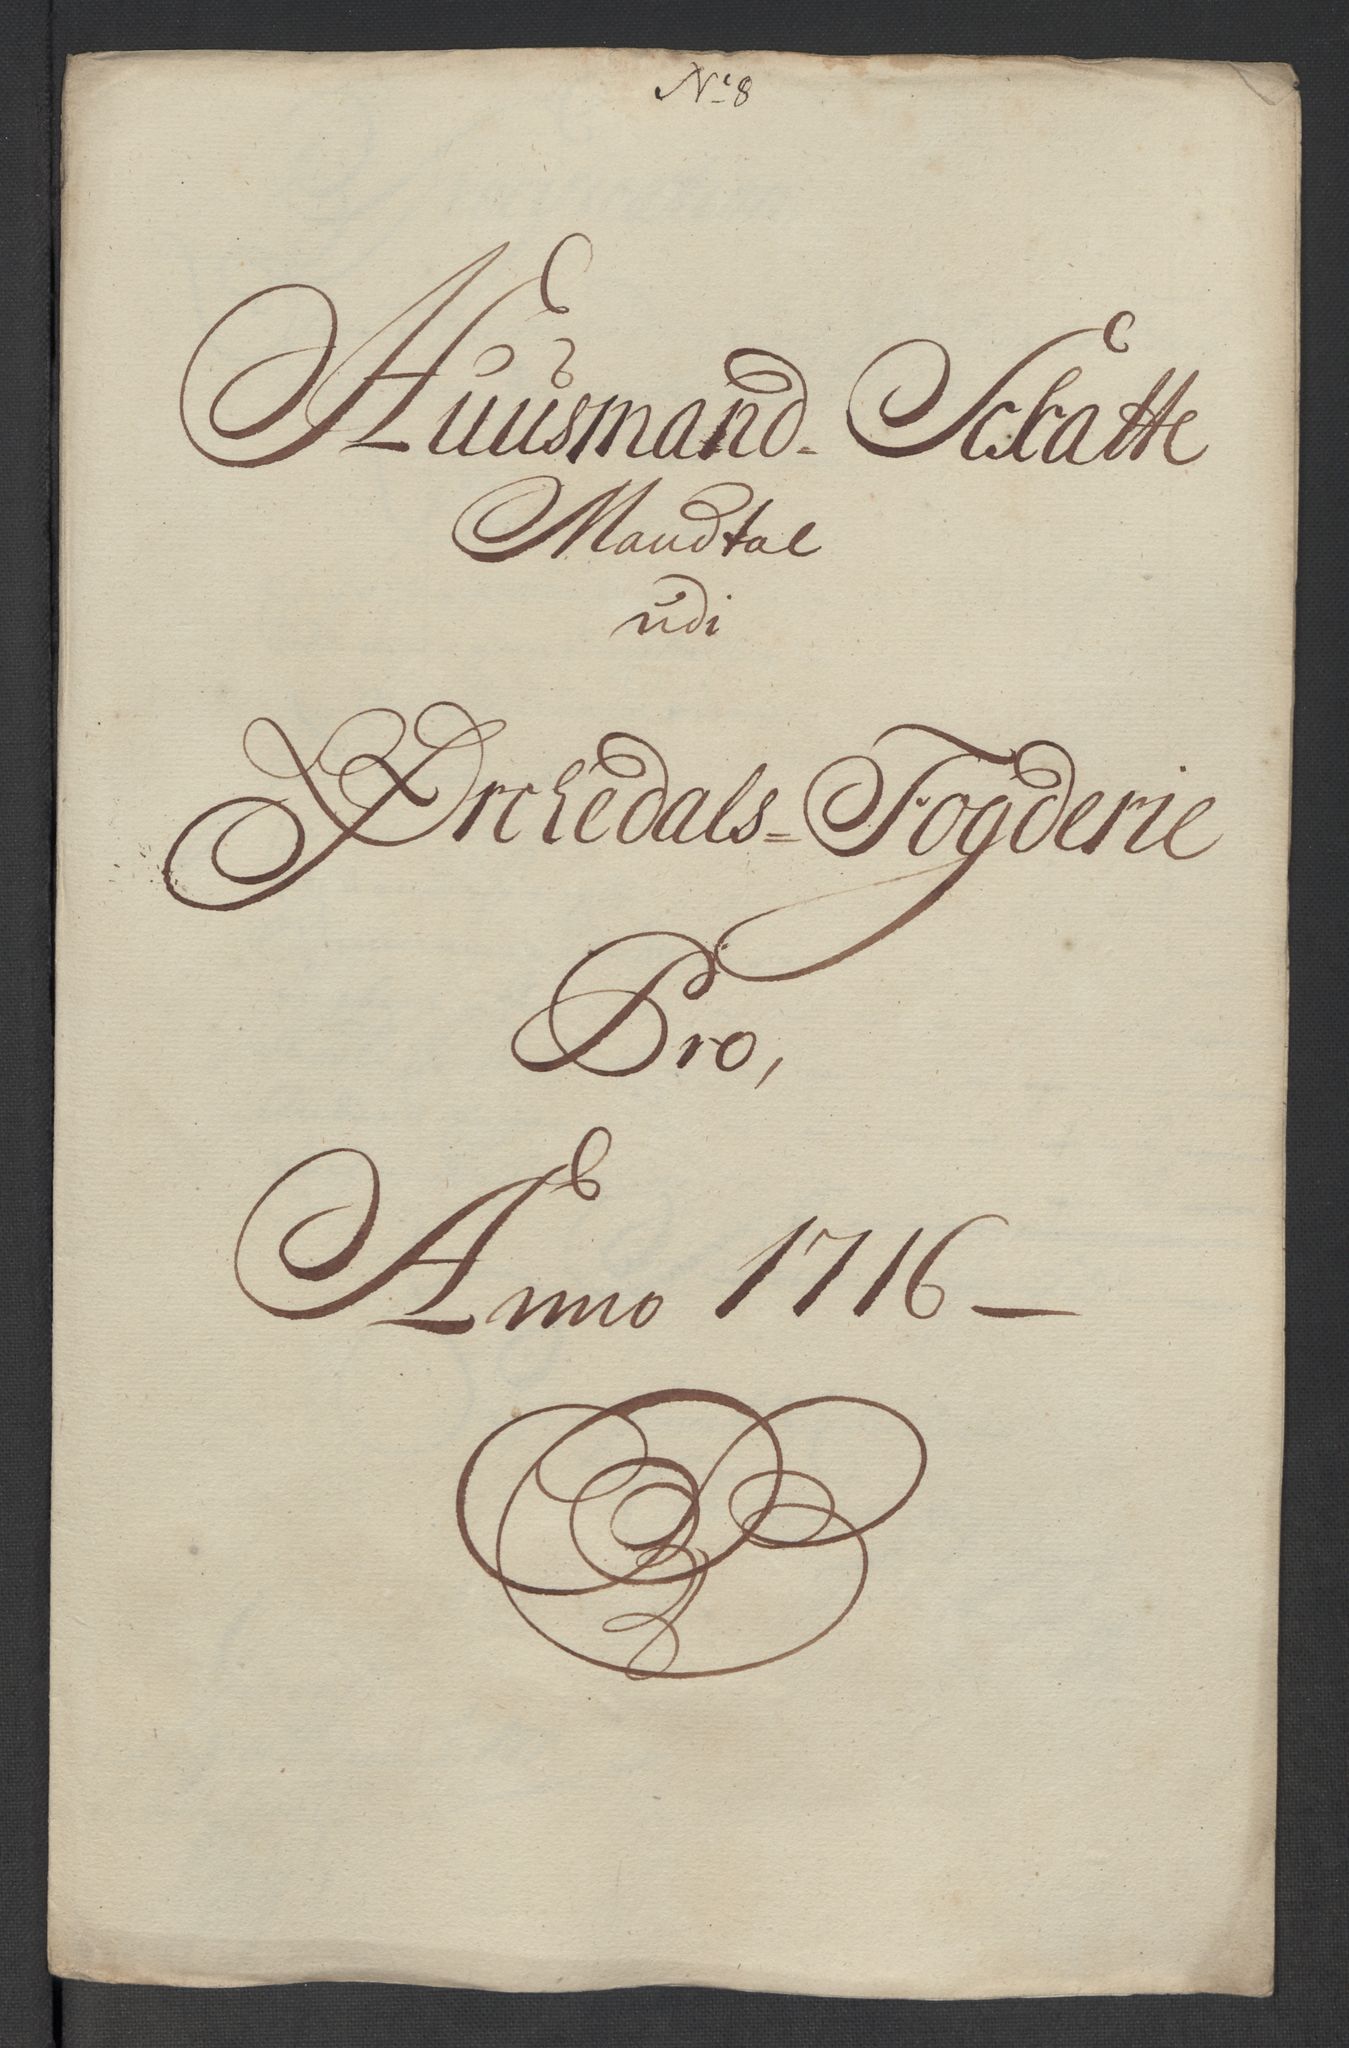 No 8
Huusmand- Schatte
Mandtal
udi
Ørchedals= Fogderie
Pro,
Anno 1716 —